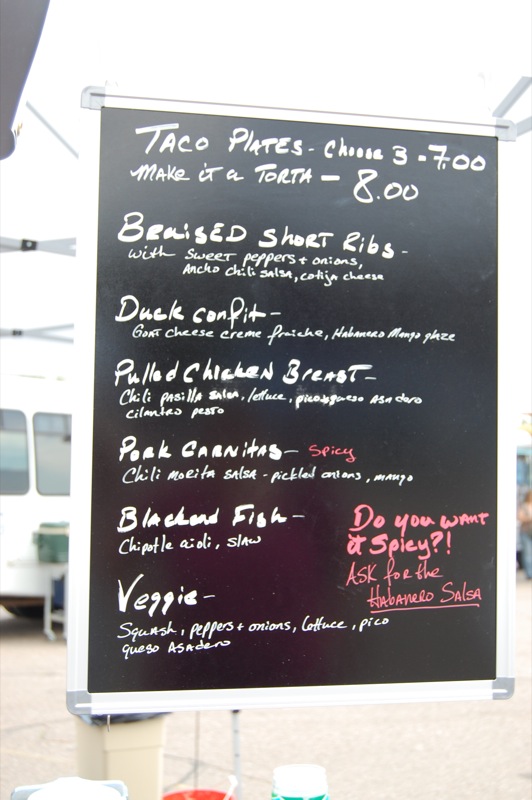 TACO PLATES - Choose 3 - 7.00
MAKE iT a TORTA - 8.00
BRAISED SHORT Ribs -
with SWEET peppers + onions,
Ancho Chili SALSA, cotija cheese
Duck confit -
GOAT cheese creme fraiche, Habanero Mango glaze
Pulled Chicken BREAST -
Chili PASILLA SALSA, lettuce, pico, queso ASAdero
cilantro pesto
PORK CARNITAS - Spicy
Chili MORITA SALSA - pickled onions, mango
Blackened Fish -
Chipotle aioli, SLAW
Do you want
it Spicy?!
ASK for the
HABANERO SALSA
Veggie -
Squash, peppers + onions, lettuce, pico
queso ASAdero